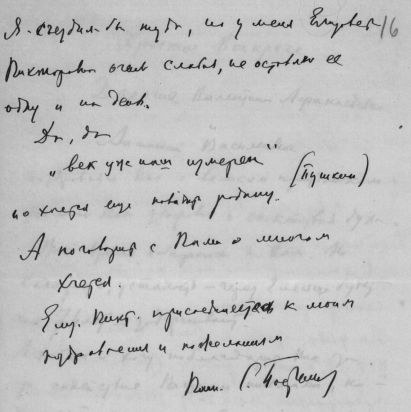 Я съездил бы туда, но у меня Елизавет 16
Викторовна очень слабая, не оставлю ее
одну и на день.
Да, да
„век уж мой измерен" (Пушкин)
но хочется еще повидать родину.
А поговорить с Вами о многом
хочется.
Елиз. Викт. присоединяется к моим
поздравлениям и пожеланиям
Ваш